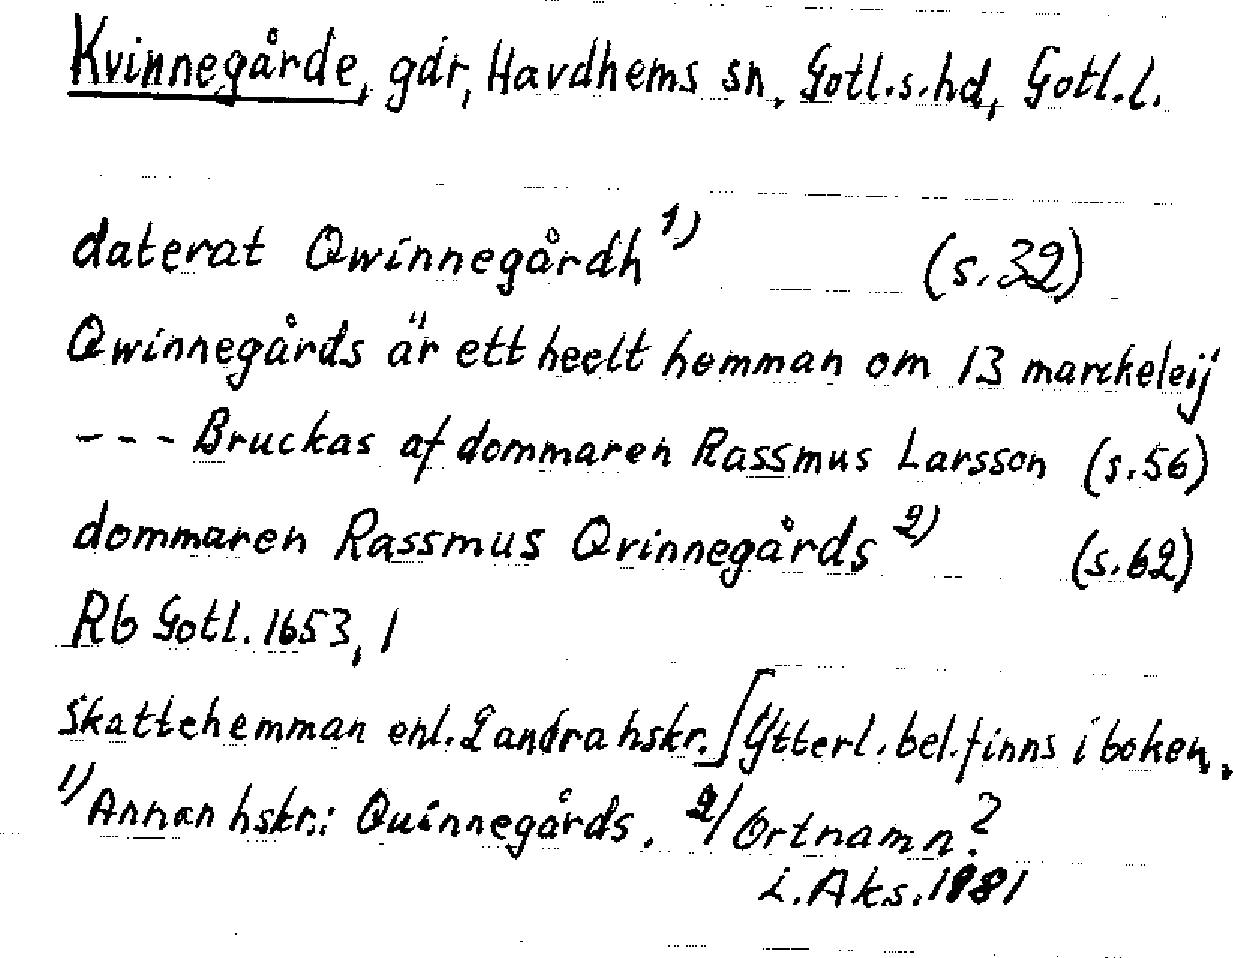 Kvinnegårde, gdr, Havdhems sn, Gotl.s.hd, Gotl.l.
daterat Qwinnegårdh 1) (s.32)
Qwinnegårds är ett heelt hemman om 13 marckeleij
--- Bruckas af dommaren Rassmus Larsson (s.56)
dommaren Rassmus Qvinnegårds 2) (s.62)
Rb Gotl. 1653, 1
Skattehemman enl. 2 andra hskr. Ytterl. bel. finns i boken.
1) Annan hskr.: Quinnegårds. 2) Ortnamn?
L. Aks. 1981